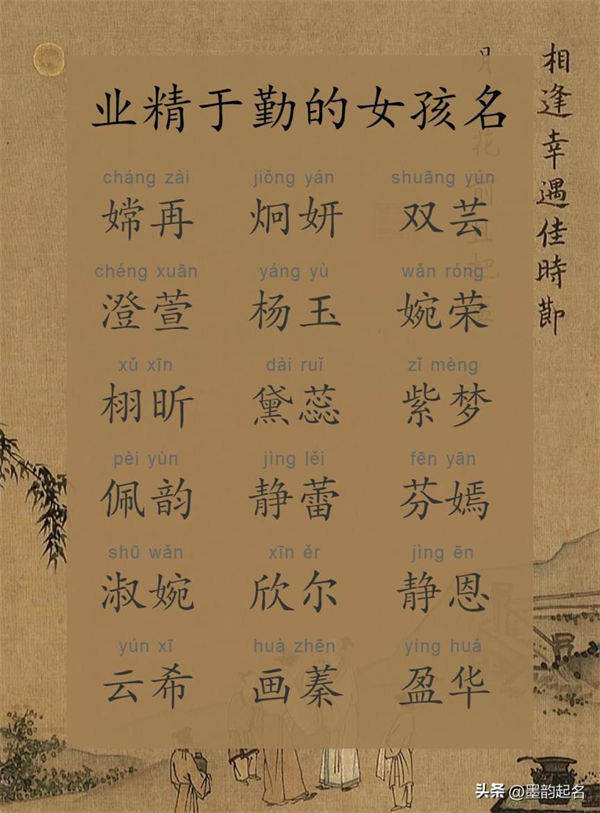 相逢幸遇佳時節
月
花前且把
业精于勤的女孩名
cháng zài jiǒng yán shuāng yún
嫦再 炯妍 双芸
chéng xuān yáng yù wǎn róng
澄萱 杨玉 婉荣
xǔ xīn dài ruǐ zǐ mèng
栩昕 黛蕊 紫梦
pèi yùn jìng lěi fēn yān
佩韵 静蕾 芬嫣
shū wǎn xīn ěr jìng ēn
淑婉 欣尔 静恩
yún xī huà zhēn yíng huá
云希 画蓁 盈华
头条 @墨韵起名